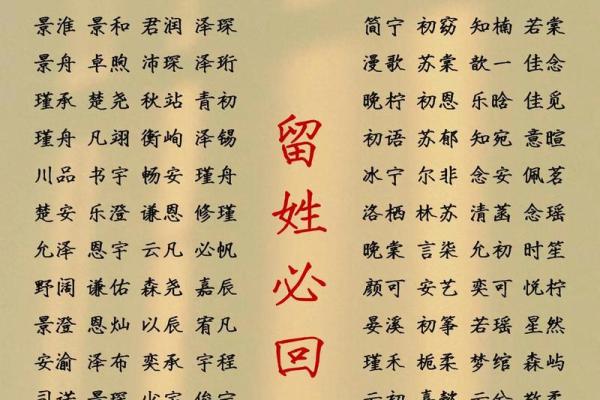 景淮 景和 君润 泽琛
景舟 卓煦 沛琛 泽珩
瑾承 楚尧 秋站 青初
瑾舟 凡翊 衡峋 泽锡
川品 书宇 畅安 瑾舟
楚安 乐澄 谦恩 修瑾
允泽 恩宇 云凡 必帆
野阔 谦佑 森尧 嘉辰
景澄 恩灿 以辰 宥凡
安渝 泽布 奕承 宇程
留姓必回
简宁 初窈 知楠 若棠
漫歌 苏棠 歆一 佳念
晚柠 初恩 乐晗 佳觅
初语 苏郁 知宛 意暄
冰宁 尔非 念安 佩茗
洛栖 林苏 清菡 念瑶
晚棠 言柒 允初 时笙
颜可 安艺 奕可 悦柠
晏溪 初筝 若瑶 星然
瑾禾 栀柔 梦绾 森屿